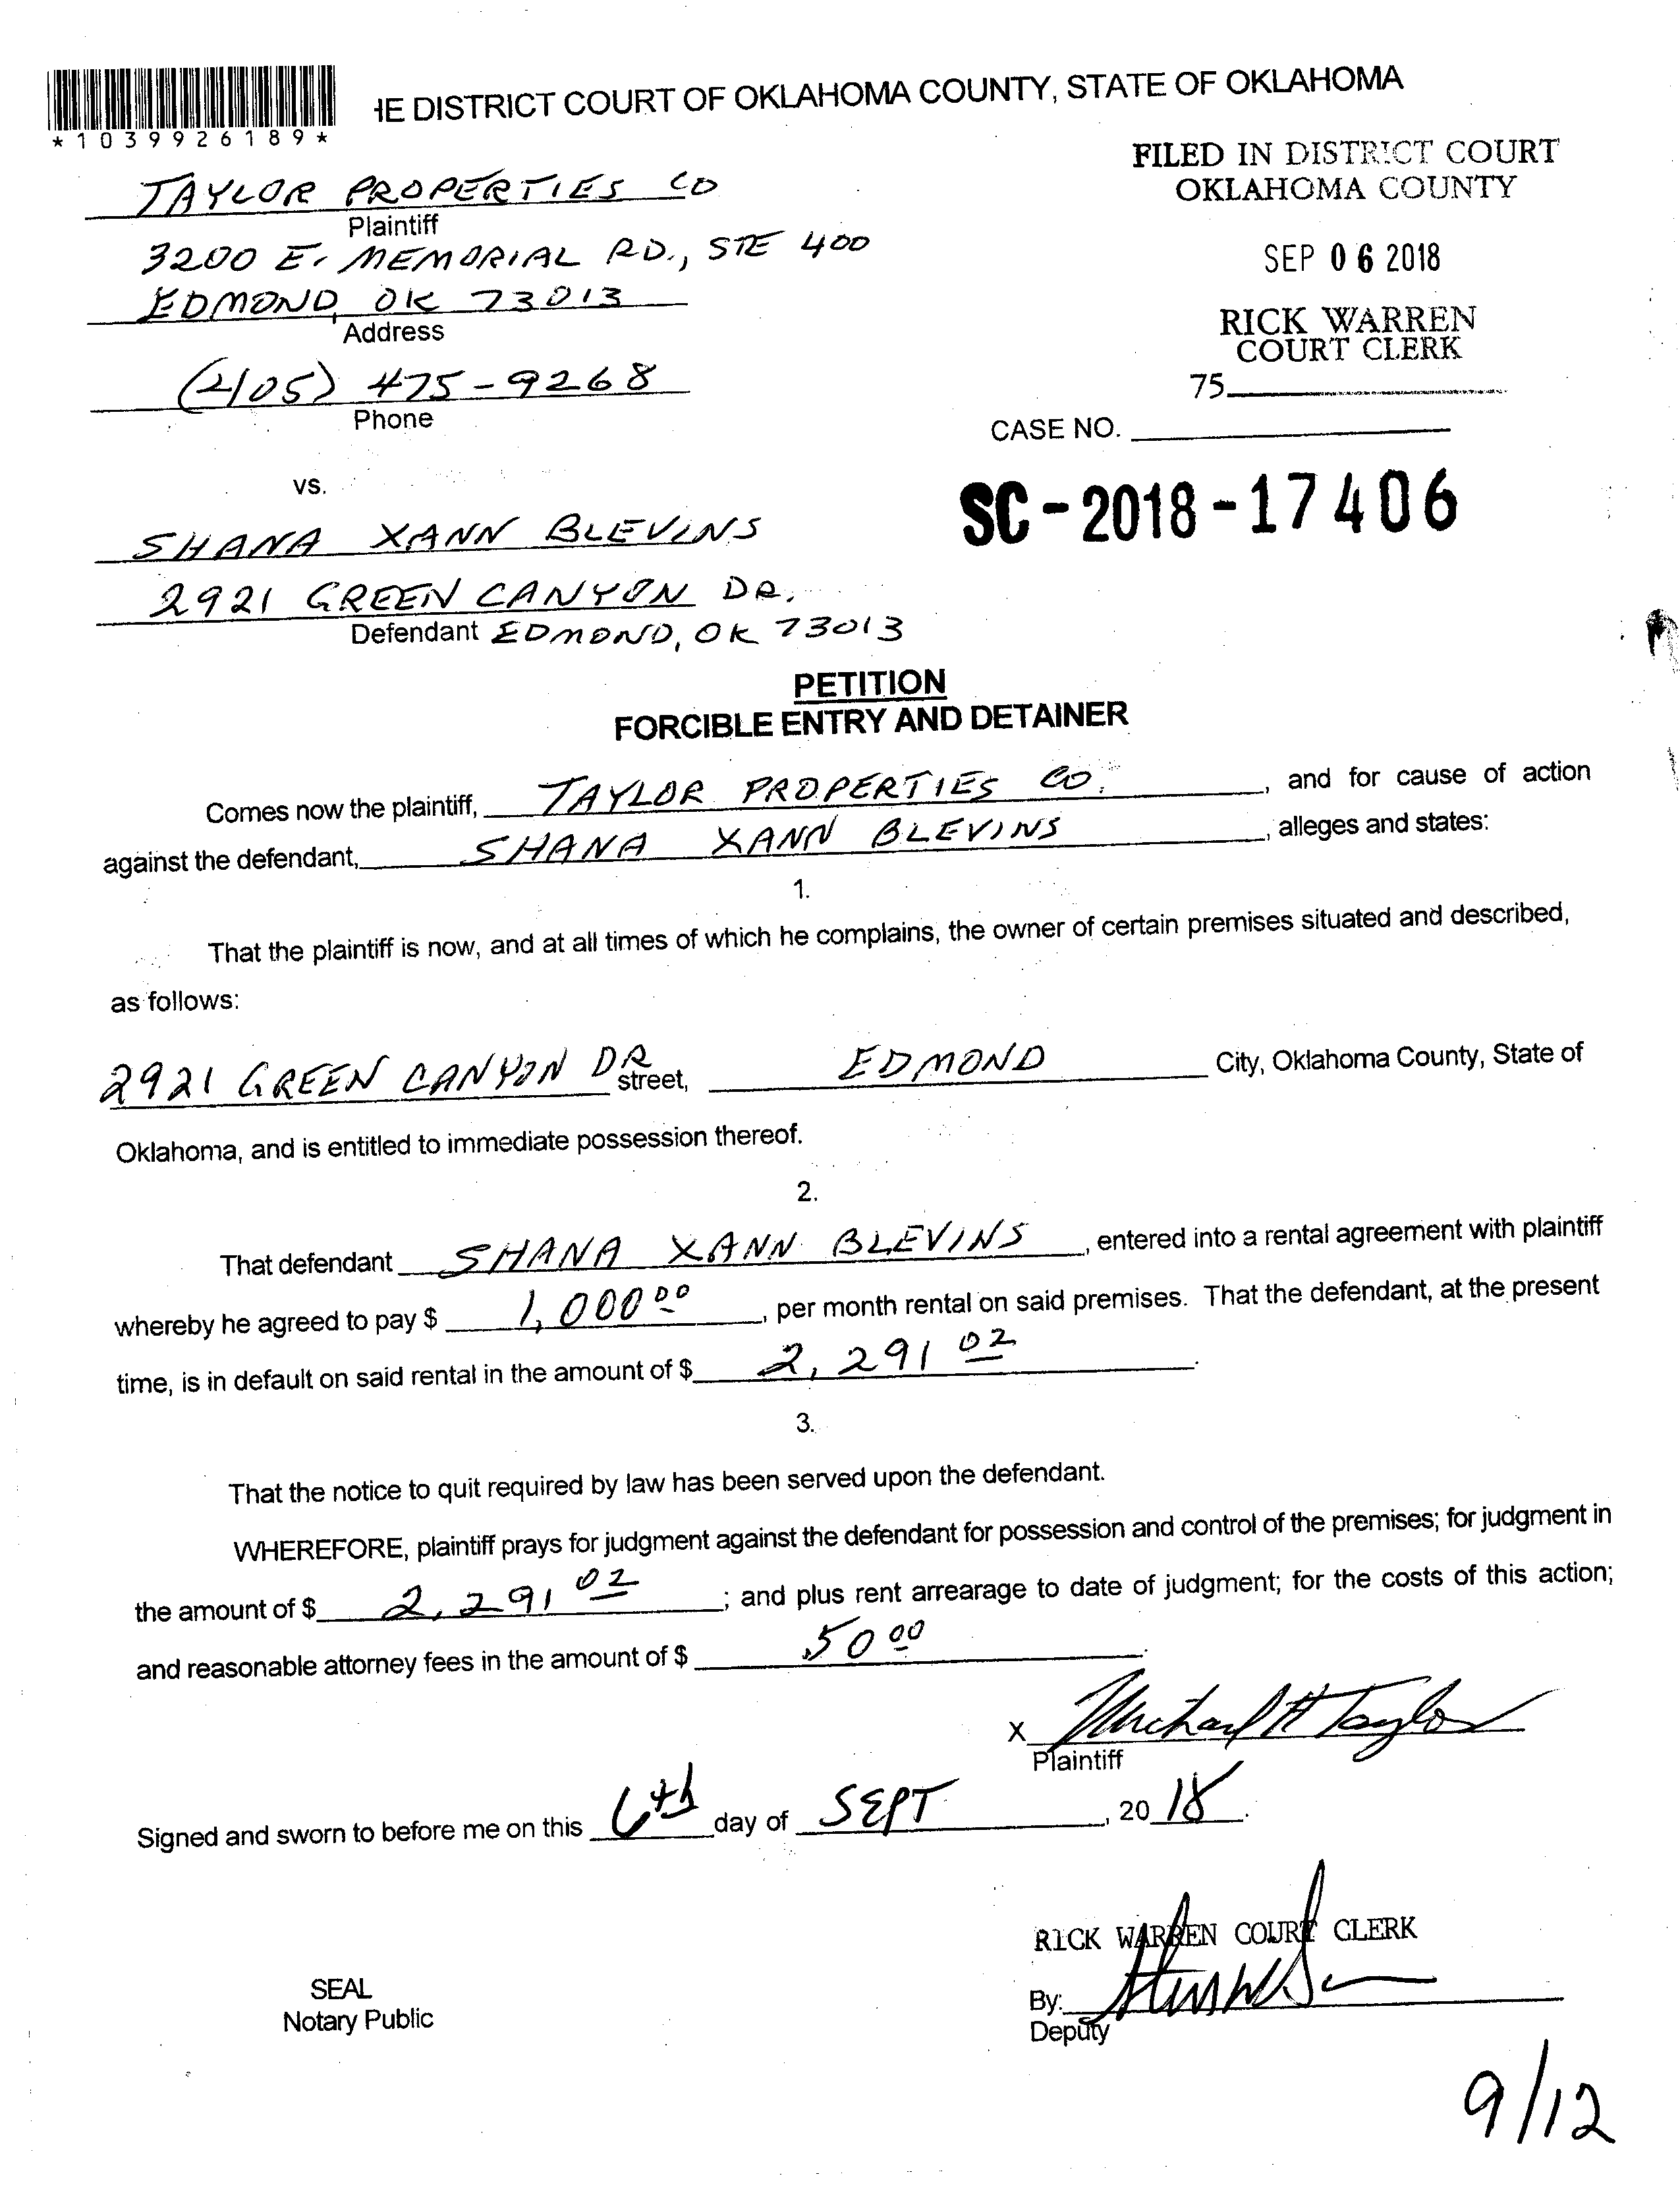 HE DISTRICT COURT OF OKLAHOMA COUNTY, STATE OF OKLAHOMA
*1039926189*
FILED IN DISTRICT COURT
OKLAHOMA COUNTY
SEP 06 2018
RICK WARREN
COURT CLERK
75
TAYLOR PROPERTIES CO
Plaintiff
3200 E. MEMORIAL RD., STE 400
EDMOND, OK 73013
Address
(405) 475-9268
Phone
CASE NO.
SC-2018-17406
vs.
SHANA XANN BLEVINS
2921 GREEN CANYON DR.
Defendant EDMOND, OK 73013
PETITION
FORCIBLE ENTRY AND DETAINER
Comes now the plaintiff, TAYLOR PROPERTIES CO., and for cause of action
against the defendant, SHANA XANN BLEVINS, alleges and states:
1.
That the plaintiff is now, and at all times of which he complains, the owner of certain premises situated and described,
as follows:
2921 GREEN CANYON DR street, EDMOND City, Oklahoma County, State of
Oklahoma, and is entitled to immediate possession thereof.
2.
That defendant SHANA XANN BLEVINS, entered into a rental agreement with plaintiff
whereby he agreed to pay $ 1,000 00, per month rental on said premises. That the defendant, at the present
time, is in default on said rental in the amount of $ 2,291 02.
3.
That the notice to quit required by law has been served upon the defendant.
WHEREFORE, plaintiff prays for judgment against the defendant for possession and control of the premises; for judgment in
the amount of $ 2,291 02; and plus rent arrearage to date of judgment; for the costs of this action;
and reasonable attorney fees in the amount of $ 50 00.
X Michael H Taylor
Plaintiff
Signed and sworn to before me on this 6th day of SEPT, 20 18.
RICK WARREN COURT CLERK
SEAL
Notary Public
By:
Deputy
9/12